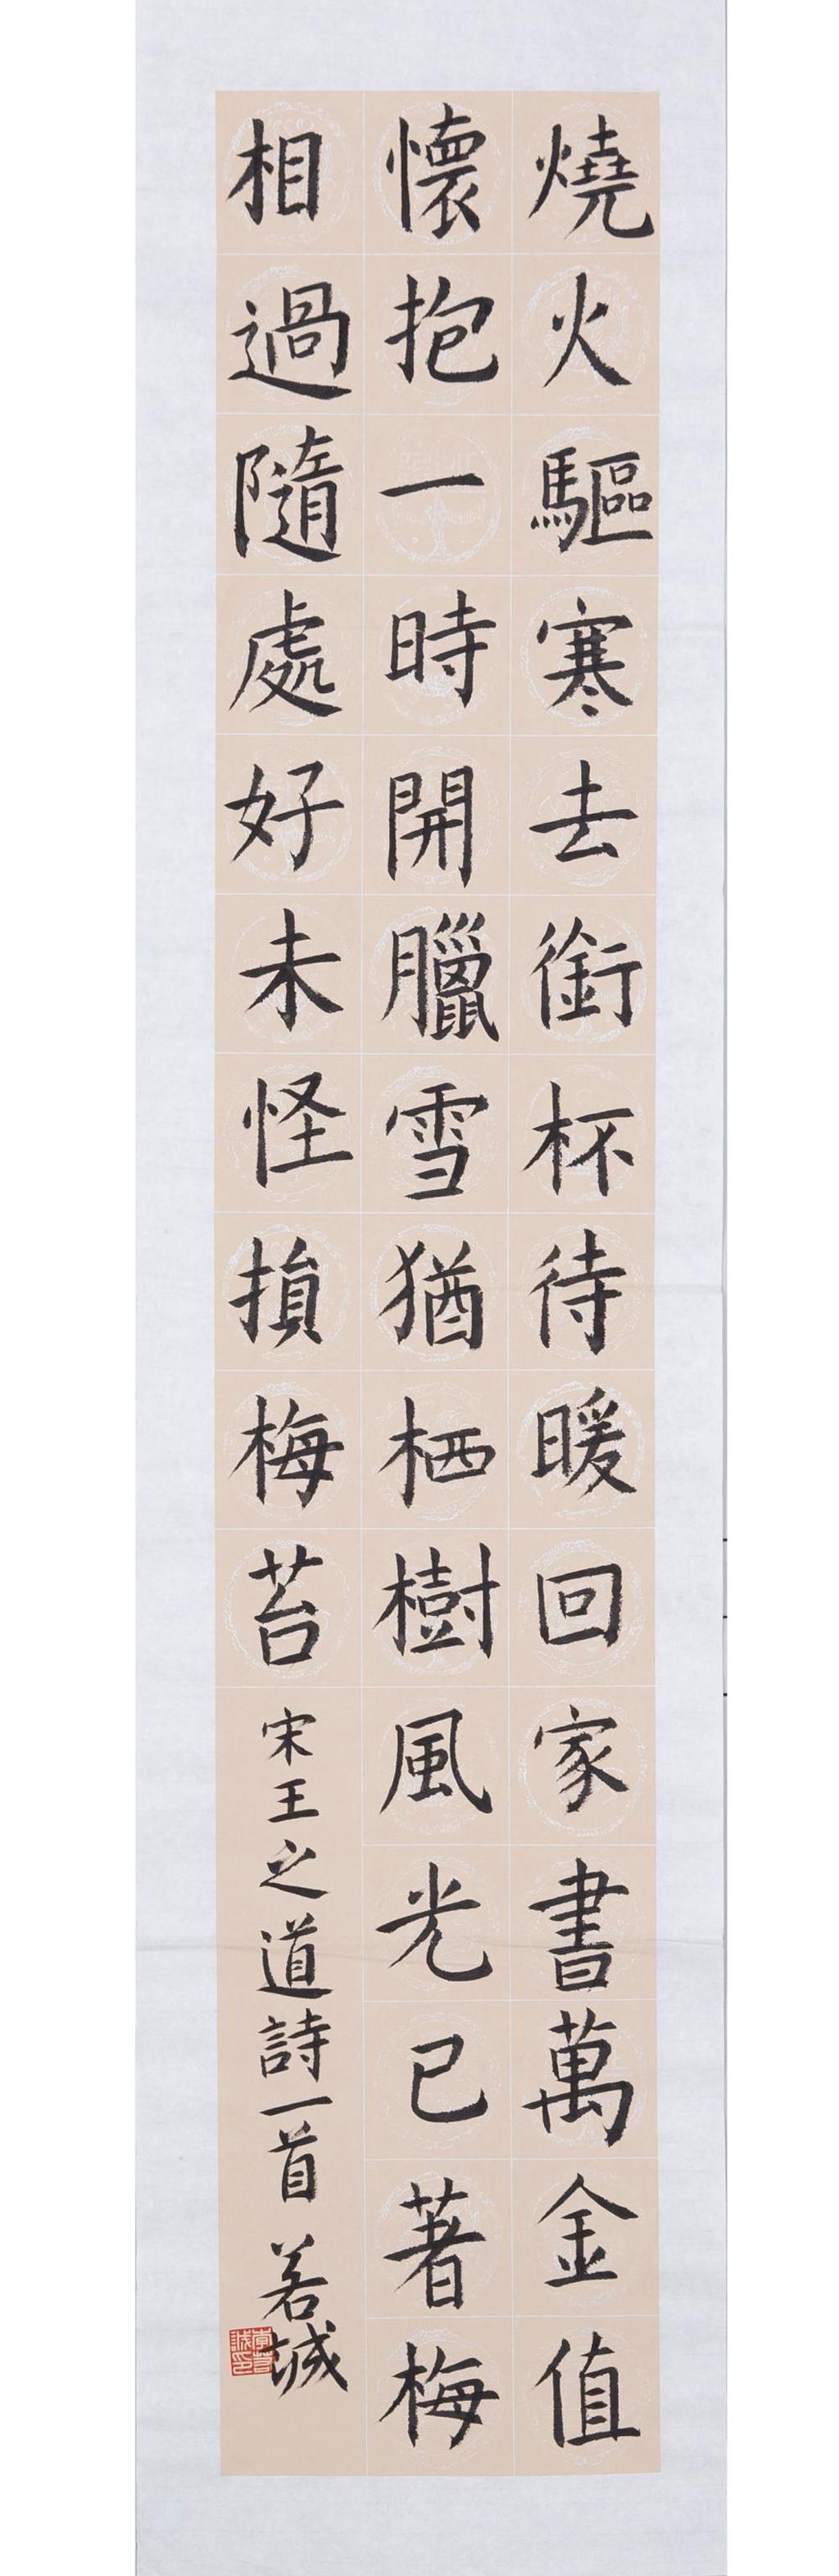 燒火驅寒去銜杯待暖回家書萬金值
懷抱一時開臘雪猶栖樹風光已著梅
相過隨處好未怪損梅苔
宋王之道詩一首 若城